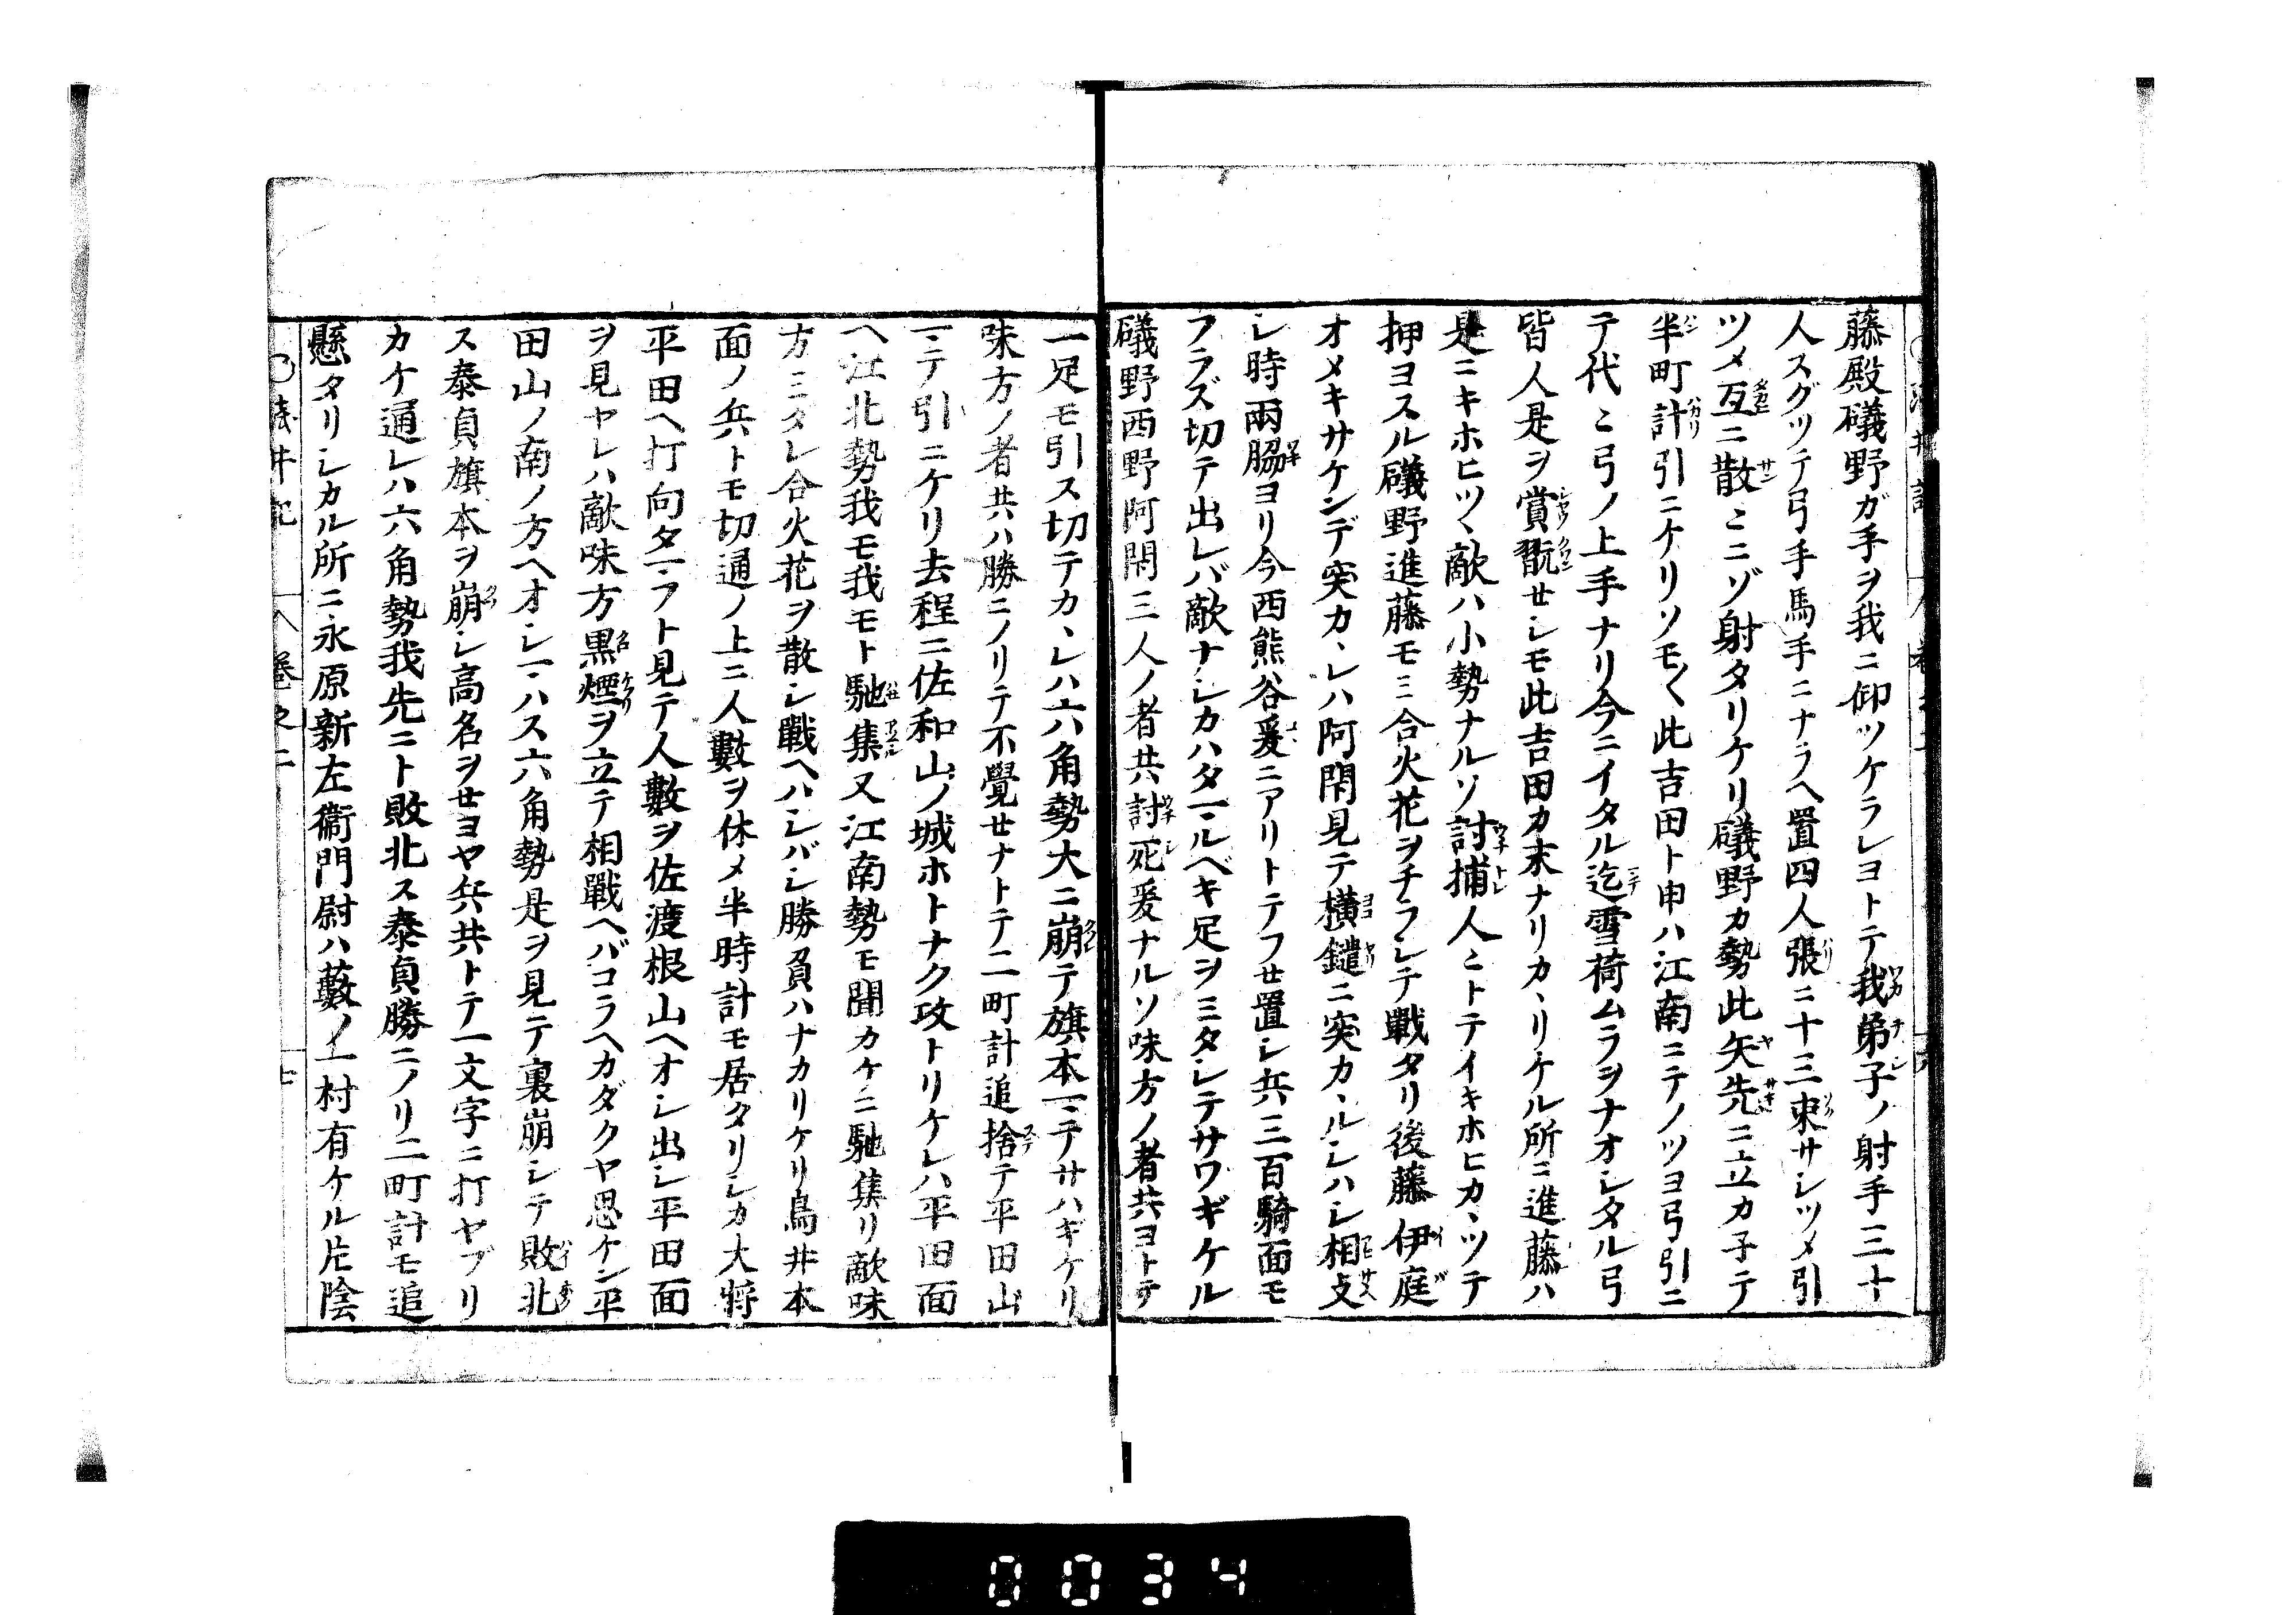 藤殿礒野ガ手ヲ我ニ仰ツケラレヨトテ我弟子ノ射手三十
人スグツテ弓手馬手ニナラヘ置四人張ニ十三束サシツメ引
ツメ互ニ散〻ニゾ射タリケリ礒野カ勢此矢先ニ立カ子テ
半町計引ニケリソモ〱此吉田ト申ハ江南ニテノツヨ弓引ニ
テ代〻弓ノ上手ナリ今ニイタル迄雪荷ムラヲナオシタル弓
皆人是ヲ賞翫せシモ此吉田カ末ナリカヽリケル所ニ進藤ハ
是ニキホヒツヽ敵ハ小勢ナルソ討捕人〻トテイキホヒカヽツテ
押ヨスル礒野進藤モ三合火花ヲチラシテ戰タリ後藤伊庭
オメキサケンデ突カヽレハ阿閉見テ横鑓ニ突カヽルシハシ相攴
シ時兩脇ヨリ今西熊谷爰ニアリトテフせ置シ兵三百騎面モ
フラズ切テ出レバ敵ナシカハタマルベキ足ヲミタシテサワギケル
礒野西野阿閉三人ノ者共討死爰ナルソ味方ノ者共ヨトテ
一足モ引ス切テカヽレハ六角勢大ニ崩テ旗本マテサハギケリ
味方ノ者共ハ勝ニノリテ不覺せナトテ二町計追捨テ平田山
マテ引ニケリ去程ニ佐和山ノ城ホトナク攻トリケレハ平田面
ヘ江北勢我モ我モト馳集又江南勢モ聞カケニ馳集リ敵味
方ミタレ合火花ヲ散シ戰ヘハシバシ勝負ハナカリケリ鳥井本
面ノ兵トモ切通ノ上ニ人數ヲ休メ半時計モ居タリシカ大將
平田ヘ打向タマフト見テ人數ヲ佐渡根山ヘオシ出シ平田面
ヲ見ヤレハ敵味方黒煙ヲ立テ相戰ヘバコラヘカダクヤ思ケン平
田山ノ南ノ方ヘオシマハス六角勢是ヲ見テ裏崩シテ敗北
ス泰貞旗本ヲ崩シ高名ヲせヨヤ兵共トテ一文字ニ打ヤブリ
カケ通レハ六角勢我先ニト敗北ス泰貞勝ニノリ二町計モ追
懸タリシカル所ニ永原新左衞門尉ハ藪ノ一村有ケル片陰